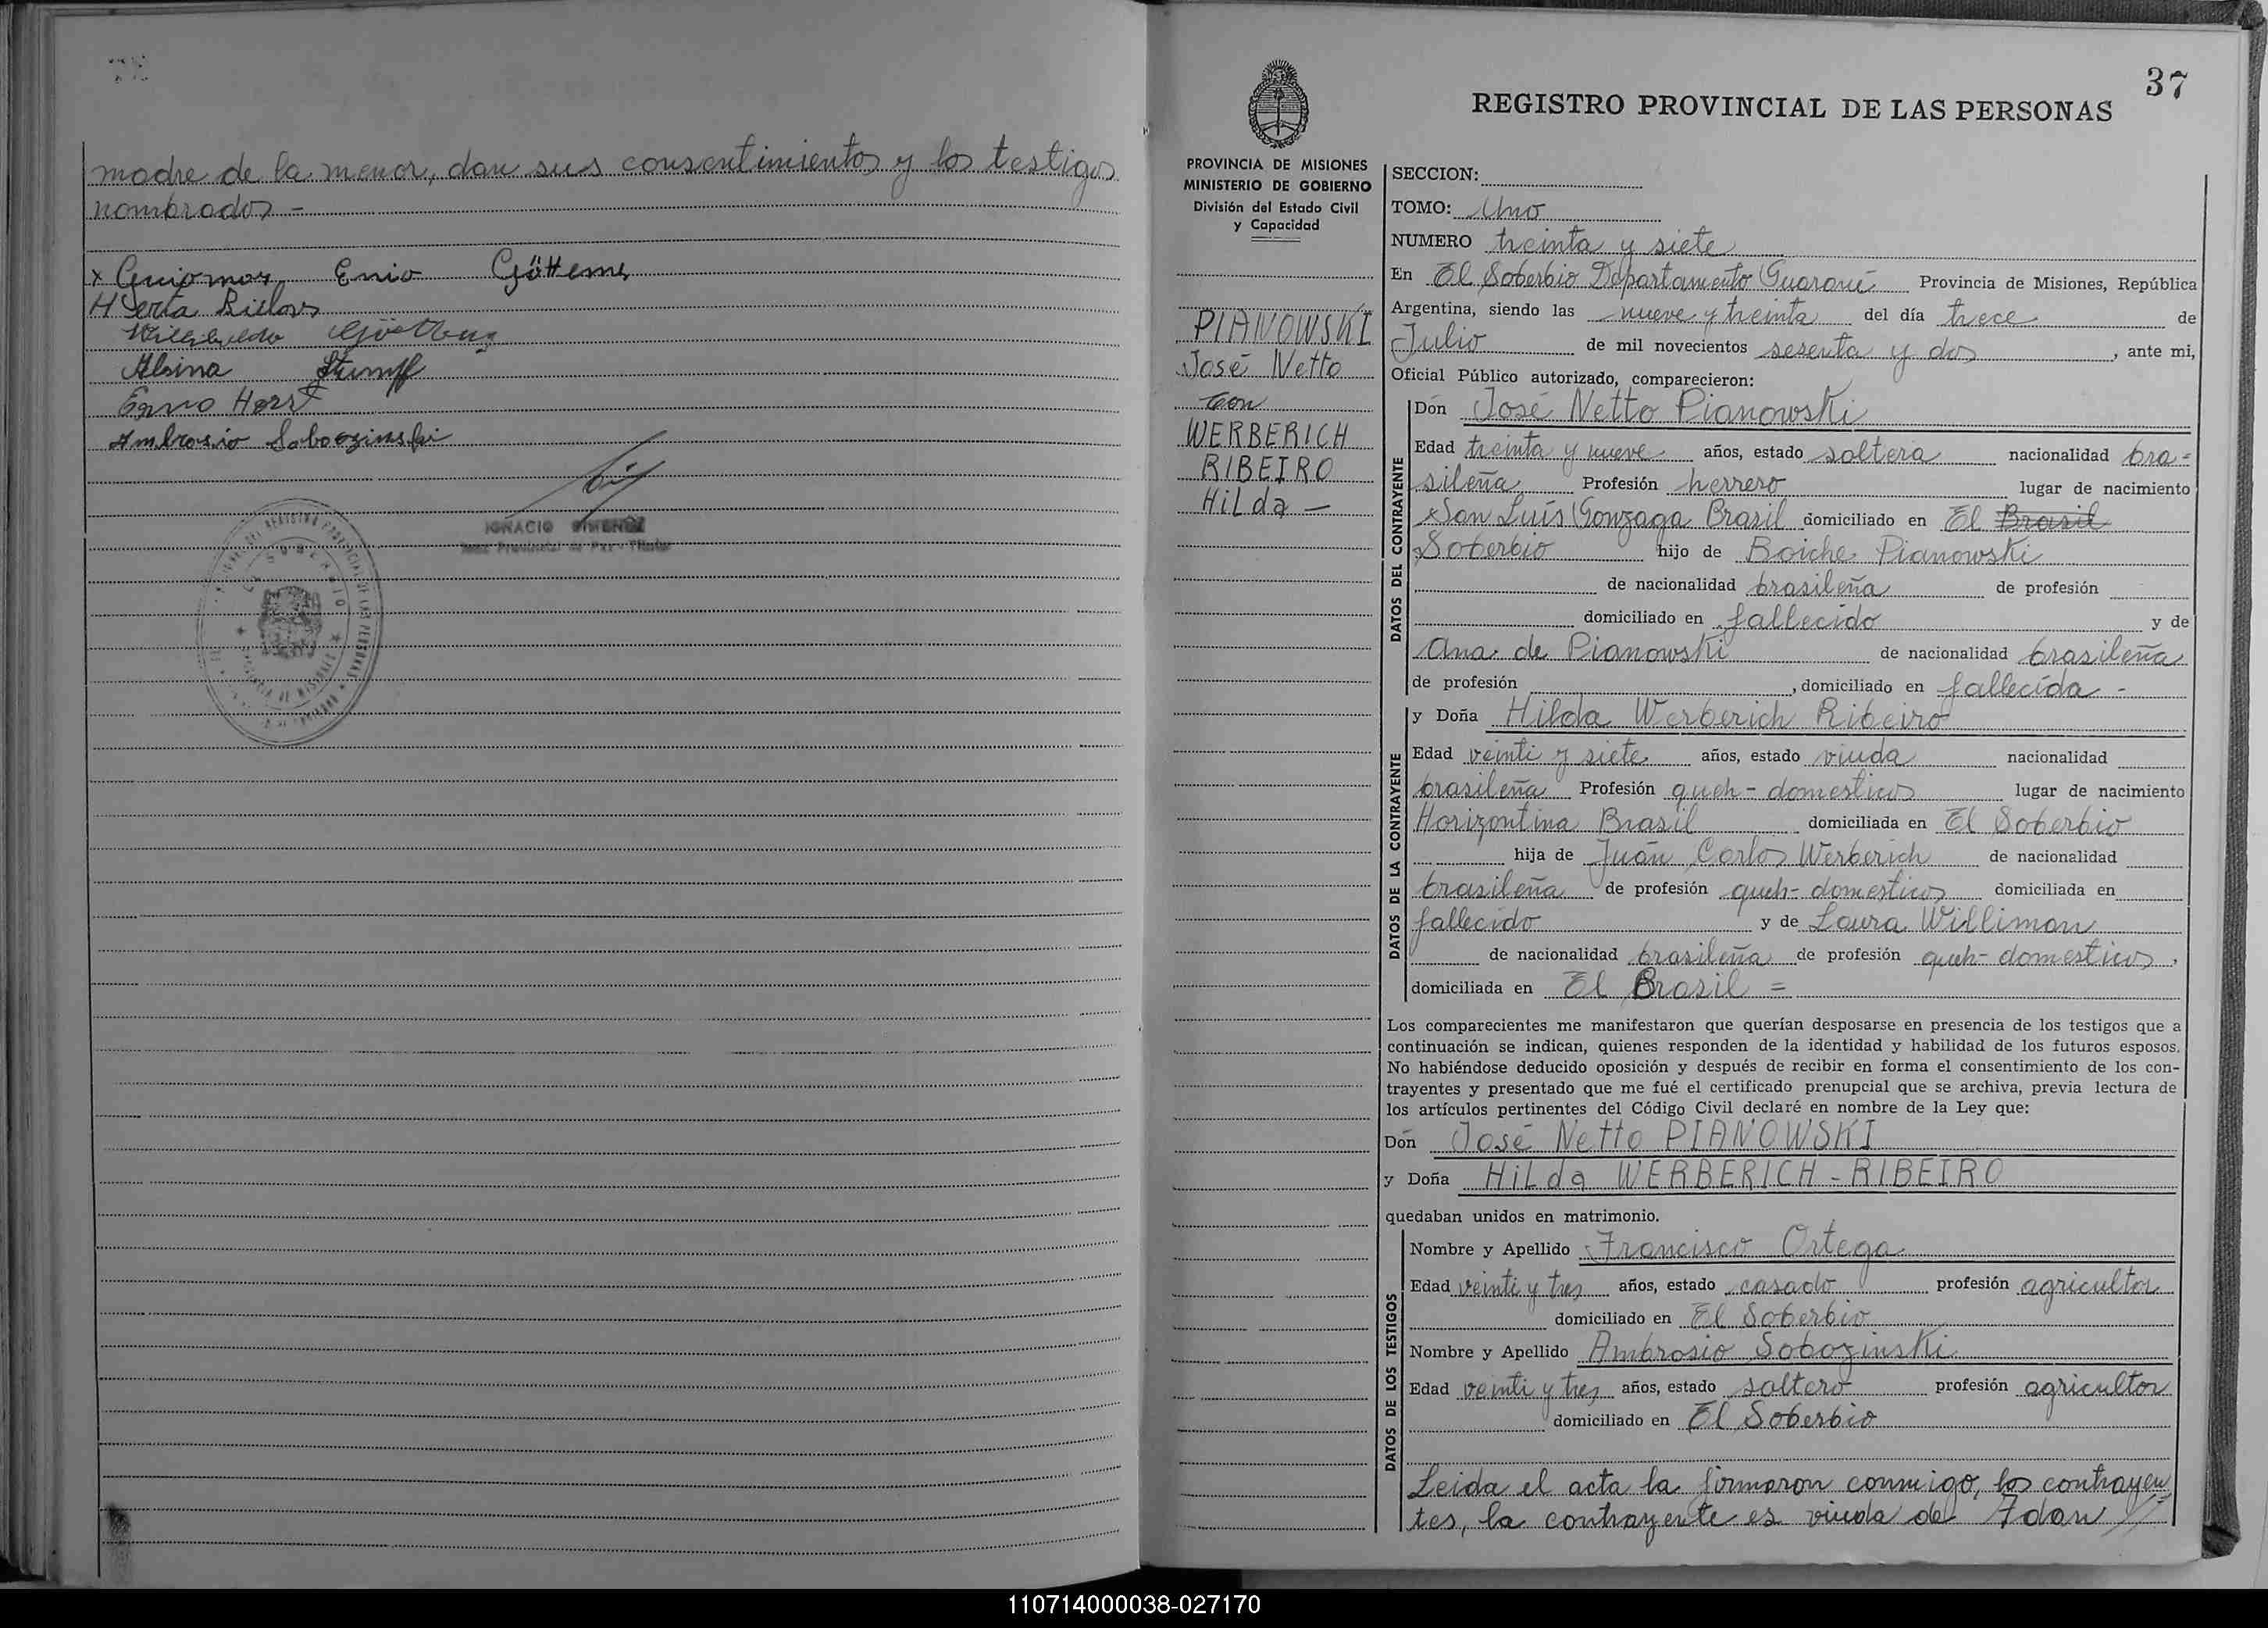 madre de la menor, dan sus consentimientos y los testigos
nombrados -
x Guiomar Enio Göttems
Willibaldo
Albina Stumpf
Erno Horst
Ambrosio Sobozinski
IGNACIO GIMENEZ
37
REGISTRO PROVINCIAL DE LAS PERSONAS
PROVINCIA DE MISIONES
MINISTERIO DE GOBIERNO
División del Estado Civil
y Capacidad
PIANOWSKI
José Netto
con
WERBERICH
RIBEIRO
Hilda —
SECCION:
TOMO: Uno
NUMERO treinta y siete
En El Soberbio Departamento Guaraní Provincia de Misiones, República
Argentina, siendo las nueve y treinta del día trece de
Julio de mil novecientos sesenta y dos, ante mi,
Oficial Público autorizado, comparecieron:
DATOS DEL CONTRAYENTE
Don José Netto Pianowski
Edad treinta y nueve años, estado soltera nacionalidad bra=
sileña Profesión herrero lugar de nacimiento
San Luís Gonzaga Brasil domiciliado en El Brasil
Soberbio hijo de Boiche Pianowski
de nacionalidad brasileña de profesión
domiciliado en fallecido y de
Ana de Pianowski de nacionalidad brasileña
de profesión , domiciliado en fallecida -
DATOS DE LA CONTRAYENTE
y Doña Hilda Werberich Ribeiro
Edad veinti y siete años, estado viuda nacionalidad
brasileña Profesión queh- domesticos lugar de nacimiento
Horizontina Brasil domiciliada en El Soberbio
hija de Juan Carlos Werberich de nacionalidad
brasileña de profesión queh- domesticos domiciliada en
fallecido y de Laura Williman
de nacionalidad brasileña de profesión queh- domesticos,
domiciliada en El Brasil =
Los comparecientes me manifestaron que querían desposarse en presencia de los testigos que a
continuación se indican, quienes responden de la identidad y habilidad de los futuros esposos.
No habiéndose deducido oposición y después de recibir en forma el consentimiento de los con-
trayentes y presentado que me fué el certificado prenupcial que se archiva, previa lectura de
los artículos pertinentes del Código Civil declaré en nombre de la Ley que:
Don José Netto PIANOWSKI
y Doña Hilda WERBERICH - RIBEIRO
quedaban unidos en matrimonio.
DATOS DE LOS TESTIGOS
Nombre y Apellido Francisco Ortega
Edad veinti y tres años, estado casado profesión agricultor
domiciliado en El Soberbio
Nombre y Apellido Ambrosio Sobozinski
Edad veinti y tres años, estado soltero profesión agricultor
domiciliado en El Soberbio
Leida el acta la firmaron conmigo, los contrayen
tes, la contrayente es viuda de Adan //
110714000038-027170